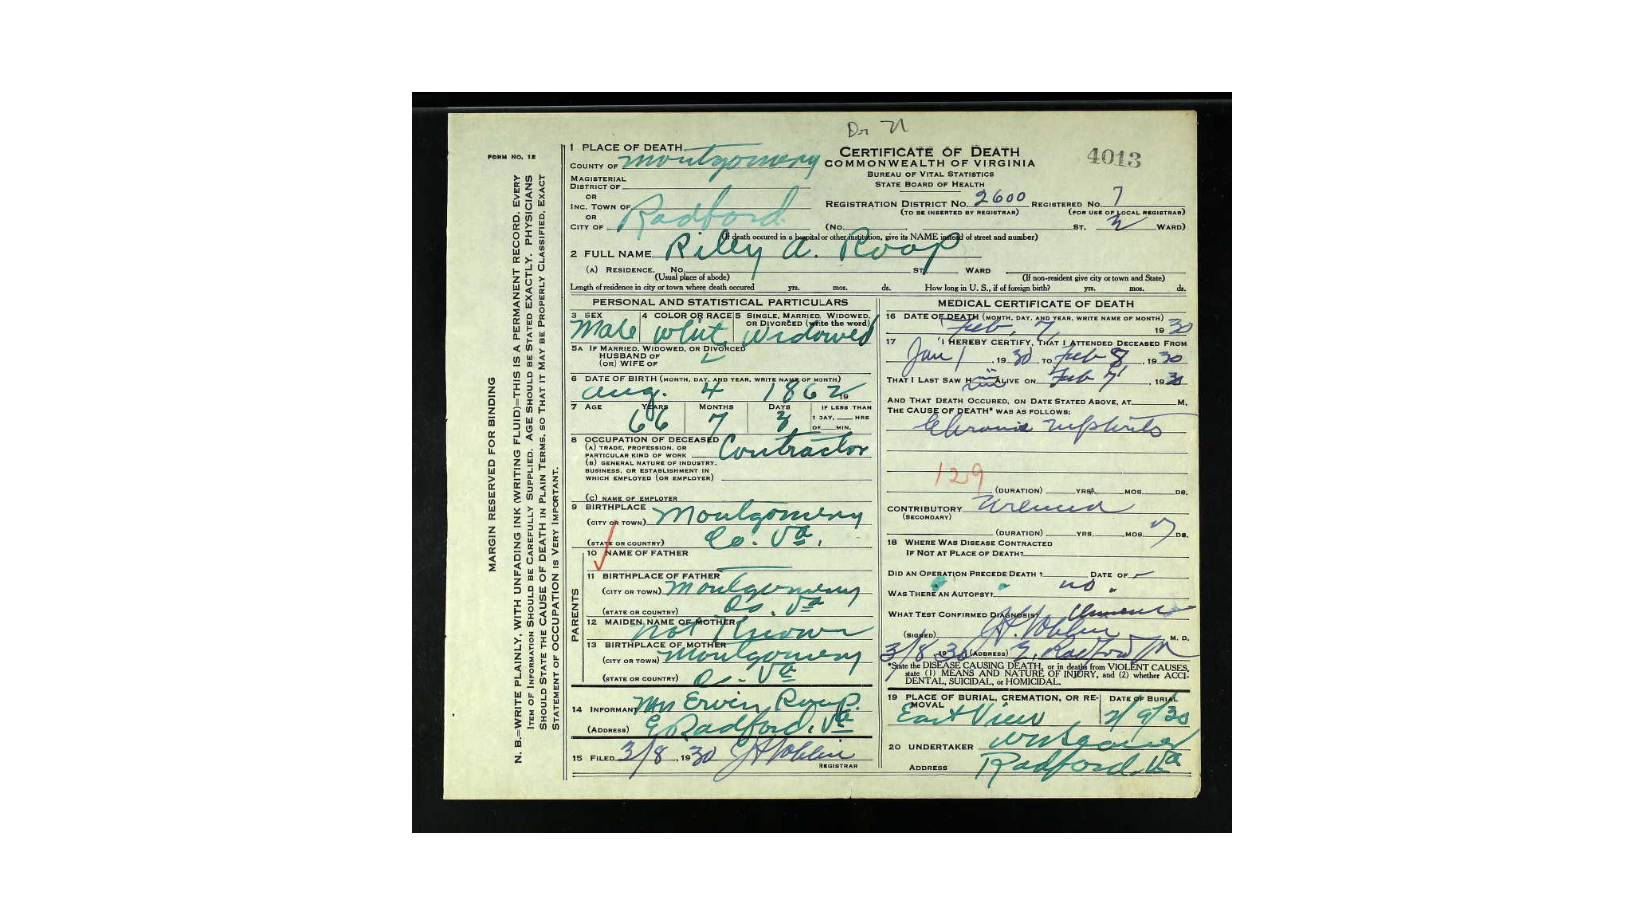 Dr 71
FORM NO. 12
1 PLACE OF DEATH
COUNTY OF Montgomery
MAGISTERIAL
DISTRICT OF
OR
INC. TOWN OF
OR
CITY OF Radford
CERTIFICATE OF DEATH
COMMONWEALTH OF VIRGINIA
BUREAU OF VITAL STATISTICS
STATE BOARD OF HEALTH
4013
REGISTRATION DISTRICT NO. 2600 REGISTERED NO. 7
(TO BE INSERTED BY REGISTRAR) (FOR USE OF LOCAL REGISTRAR)
(No. ST. WARD)
(If death occured in a hospital or other institution, give its NAME instead of street and number)
2 FULL NAME Riley A. Roop
(A) RESIDENCE. No. ST. WARD
(Usual place of abode) (If non-resident give city or town and State)
Length of residence in city or town where death occured yrs. mos. ds. How long in U. S., if of foreign birth? yrs. mos. ds.
PERSONAL AND STATISTICAL PARTICULARS
3 SEX 4 COLOR OR RACE 5 SINGLE, MARRIED, WIDOWED,
OR DIVORCED (write the word)
Male Whit Widowed
5A IF MARRIED, WIDOWED, OR DIVORCED
HUSBAND OF
(OR) WIFE OF
6 DATE OF BIRTH (MONTH, DAY, AND YEAR, WRITE NAME OF MONTH)
Aug. 4 1862
7 AGE YEARS MONTHS DAYS IF LESS THAN
1 DAY, HRS
OR MIN.
66 7 3
8 OCCUPATION OF DECEASED
(A) TRADE, PROFESSION, OR
PARTICULAR KIND OF WORK Contractor
(B) GENERAL NATURE OF INDUSTRY,
BUSINESS, OR ESTABLISHMENT IN
WHICH EMPLOYED (OR EMPLOYER)
(C) NAME OF EMPLOYER
9 BIRTHPLACE
(CITY OR TOWN) Montgomery
(STATE OR COUNTRY) Co. Va.
PARENTS
10 NAME OF FATHER
11 BIRTHPLACE OF FATHER
(CITY OR TOWN) Montgomery
(STATE OR COUNTRY) Co. Va
12 MAIDEN NAME OF MOTHER
Not Known
13 BIRTHPLACE OF MOTHER
(CITY OR TOWN) Montgomery
(STATE OR COUNTRY) Co. Va
14 INFORMANT Mrs Ervin Roop.
(ADDRESS) E Radford. Va
15 FILED 3/8, 1930
REGISTRAR
MEDICAL CERTIFICATE OF DEATH
16 DATE OF DEATH (MONTH, DAY, AND YEAR, WRITE NAME OF MONTH)
Feb, 7, 1930
17 I HEREBY CERTIFY, THAT I ATTENDED DECEASED FROM
Jan 1, 1930, TO Feb 8, 1930
THAT I LAST SAW H ALIVE ON Feb 7, 1930
AND THAT DEATH OCCURED, ON DATE STATED ABOVE, AT M.
THE CAUSE OF DEATH* WAS AS FOLLOWS:
Chronic Nephritis
129
(DURATION) YRS. MOS. DS.
CONTRIBUTORY Uremia
(SECONDARY)
(DURATION) YRS. MOS. 7 DS.
18 WHERE WAS DISEASE CONTRACTED
IF NOT AT PLACE OF DEATH?
DID AN OPERATION PRECEDE DEATH? DATE OF
WAS THERE AN AUTOPSY? no.
WHAT TEST CONFIRMED DIAGNOSIS?
(SIGNED) M. D.
3/8, 1930 (ADDRESS) E. Radford
*State the DISEASE CAUSING DEATH, or in deaths from VIOLENT CAUSES, state (1) MEANS AND NATURE OF INJURY, and (2) whether ACCIDENTAL, SUICIDAL, or HOMICIDAL.
19 PLACE OF BURIAL, CREMATION, OR REMOVAL DATE OF BURIAL
East View 2/9/30
20 UNDERTAKER
ADDRESS Radford. Va
MARGIN RESERVED FOR BINDING
N. B.—WRITE PLAINLY, WITH UNFADING INK (WRITING FLUID)—THIS IS A PERMANENT RECORD. EVERY
ITEM OF INFORMATION SHOULD BE CAREFULLY SUPPLIED. AGE SHOULD BE STATED EXACTLY. PHYSICIANS
SHOULD STATE THE CAUSE OF DEATH IN PLAIN TERMS, SO THAT IT MAY BE PROPERLY CLASSIFIED. EXACT
STATEMENT OF OCCUPATION IS VERY IMPORTANT.